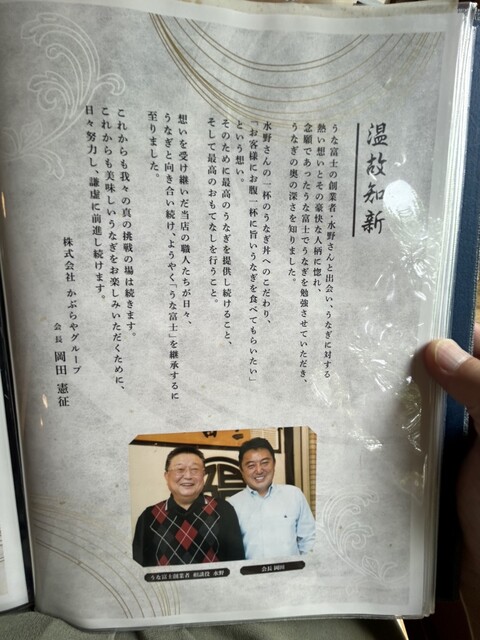 温故知新
うな富士の創業者・水野さんと出会い、うなぎに対する
熱い想いとその豪快な人柄に惚れ、
念願であったうな富士でうなぎを勉強させていただき、
うなぎの奥の深さを知りました。
水野さんの一杯のうなぎ丼へのこだわり、
「お客様にお腹一杯に旨いうなぎを食べてもらいたい」
という想い。
そのために最高のうなぎを提供し続けること、
そして最高のおもてなしを行うこと。
想いを受け継いだ当店の職人たちが日々、
うなぎと向き合い続け、ようやく「うな富士」を継承するに
至りました。
これからも我々の真の挑戦の場は続きます。
これからも美味しいうなぎをお楽しみいただくために、
日々努力し、謙虚に前進し続けます。
株式会社 かぶらやグループ
会長 岡田 憲征
うな富士創業者 相談役 水野
会長 岡田